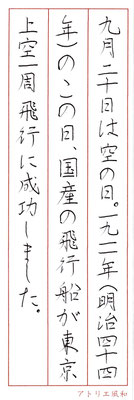 九月二十日は空の日。一九一一年(明治四十四
年)のこの日、国産の飛行船が東京
上空一周飛行に成功しました。
アトリエ風和